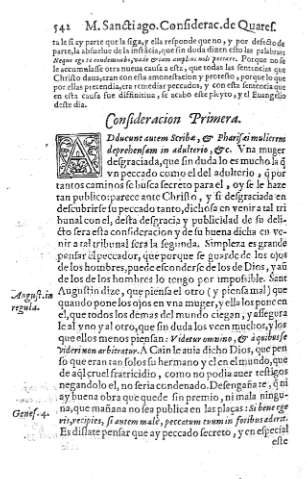 542 M. Sanctiago. Considerac. de Quares.
ta le si ay parte que la siga, y ella responde que no, y por defecto de
parte, la absuelue de la instãcia, que sin duda dizen esto las palabras:
Neque ego te condemnabo, vade & iam amplius noli peccare. Porque no se
le acumulasse otra nueua causa, y este, que todas las sentencias que
Christo daua, eran con esta amonestacion y protesto, porque lo que
por ellas pretendia, era remediar peccados, y con esta sentencia que
en esta causa fue diffinitiua, se acabo este pleyto, y el Euangelio
deste dia.
Consideracion Primera.
ADducunt autem Scribæ, & Pharisæi mulierem
deprehensam in adulterio, &c. Vna muger
desgraciada, que sin duda lo es mucho la q̃
vn peccado como el del adulterio, q̃ por
tantos caminos se busca secreto para el, oy se le haze
tan publico: parece ante Christo, y si desgraciada en
descubrirse su peccado tanto, dichosa en venir a tal tri
bunal con el, desta desgracia y publicidad de su deli-
cto sera esta consideracion y de su buena dicha en ve-
nir a tal tribunal sera la segunda. Simpleza es grande
pensar el peccador, que porque se guarde de los ojos
de los hombres, puede esconderse de los de Dios, y aũ
de los de los hombres lo tengo por impossible. Sant
Augustin dize, que piensa el otro (y piensa mal) que
August. in
regula.
quando pone los ojos en vna muger, y ella los pone en
el, que todos los demas del mundo ciegan, y assegura
le al vno y al otro, que sin duda los veen muchos, y los
que ellos menos piensan: Videtur omnino, & à quibus se
videri non arbitratur. A Cain le auia dicho Dios, que pen
so que eran tan solos su hermano y el en el mundo, que
de aql cruel fratricidio, como no podia auer testigos
negandolo el, no seria condenado. Desengañate, q̃ ni
ay buena obra que quede sin premio, ni mala ningu-
na, que mañana no sea publica en las plaças: Si bene ege
Genes. 4.
ris, recipies, si autem malè, peccatum tuum in foribus aderit.
Es dislate pensar que ay peccado secreto, y en especial
este